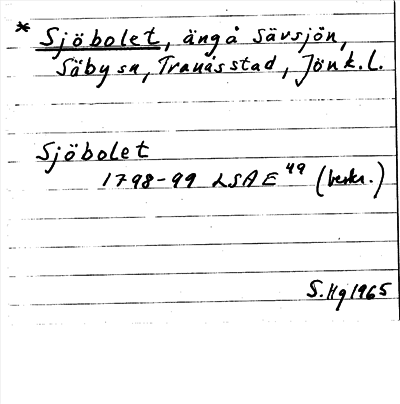 * Sjöbolet, äng å Sävsjön,
Säby sn, Tranås stad, Jönk. l.
Sjöbolet
1798-99 LSA E 49 (beskr.)
S. Hg 1965